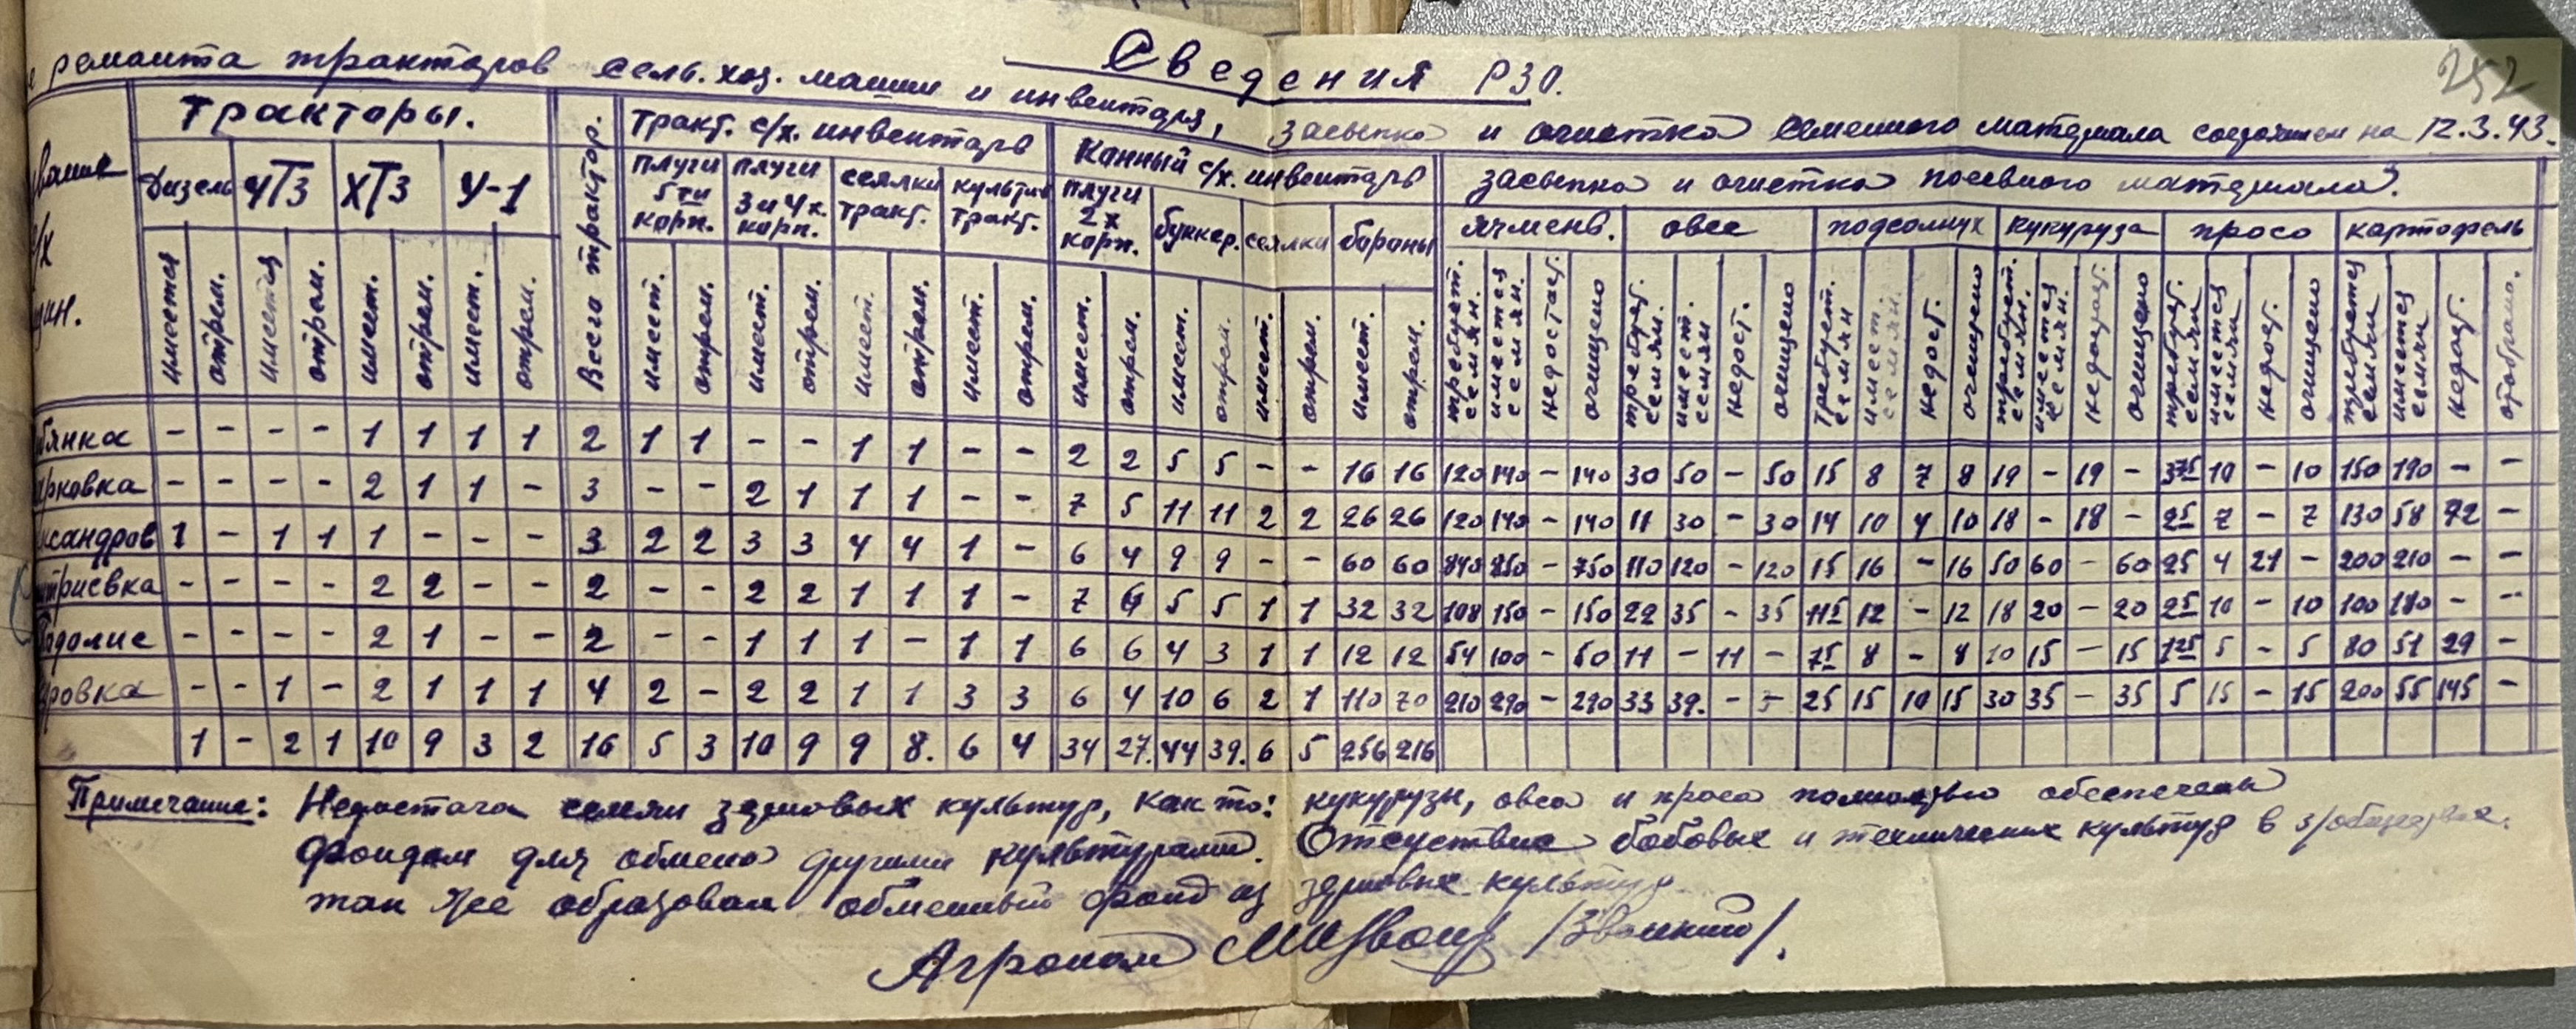 Сведения РЗО.
252
ремонта тракторов сель. хоз. машин и инвентаря, засыпка и очистка семенного материала состоянием на 12.3.43.
Тракторы. Всего трактор. Тракт. с/х. инвентарь Конный с/х. инвентарь засыпка и очистка посевного материала.
Дизель ЧТЗ ХТЗ У-1 плуги 5ти корп. плуги 3 и 4х. корп. сеялки тракт. культив тракт. плуги 2х корп. буккер. сеялки бороны ячмень. овес подсолнух кукуруза просо картофель
имеется отрем. имеется отрем. имеет. отрем. имеет. отрем. имеет. отрем. имеет. отрем. имеет. отрем. имеет. отрем. имеет. отрем. имеет. отрем. имеет. отрем. имеет. отрем. требует. семян. имеется семян. недостает. очищено требует. семян. имеет. семян недост. очищено требует. семян имеет. семян. недост. очищено требует. семян. имеется семян. недощ. очищено требует. семян имеется семян недост. очищено требуется семян имеется семян недост. отобрано.
бянка - - - - 1 1 1 1 2 1 1 - - 1 1 - - 2 2 5 5 - - 16 16 120 140 - 140 30 50 - 50 15 8 7 8 19 - 19 - 375 10 - 10 150 190 - -
рковка - - - - 2 1 1 - 3 - - 2 1 1 1 - - 7 5 11 11 2 2 26 26 120 140 - 140 11 30 - 30 14 10 4 10 18 - 18 - 25 7 - 7 130 58 72 -
ександров 1 - 1 1 1 - - - 3 2 2 3 3 4 4 1 - 6 4 9 9 - - 60 60 840 850 - 750 110 120 - 120 15 16 - 16 50 60 - 60 25 4 21 - 200 210 - -
итриевка - - - - 2 2 - - 2 - - 2 2 1 1 1 - 7 6 5 5 1 1 32 32 108 150 - 150 22 35 - 35 115 12 - 12 18 20 - 20 25 10 - 10 100 180 - -
Подолие - - - - 2 1 - - 2 - - 1 1 1 - 1 1 6 6 4 3 1 1 12 12 54 100 - 50 11 - 11 - 75 8 - 8 10 15 - 15 125 5 - 5 80 51 29 -
ровка - - 1 - 2 1 1 1 4 2 - 2 2 1 1 3 3 6 4 10 6 2 1 110 70 210 290 - 290 33 39. - - 25 15 10 15 30 35 - 35 5 15 - 15 200 55 145 -
1 - 2 1 10 9 3 2 16 5 3 10 9 9 8. 6 4 34 27. 44 39. 6 5 256 216
Примечание: Недостача семян зерновых культур, как то: кукурузы, овса и проса полностью обеспечены
фондом для обмена другими культурами. Отсутствие бобовых и технических культур в
так же образован обменный фонд из зерновых культур
Агроном /Звонкий/.